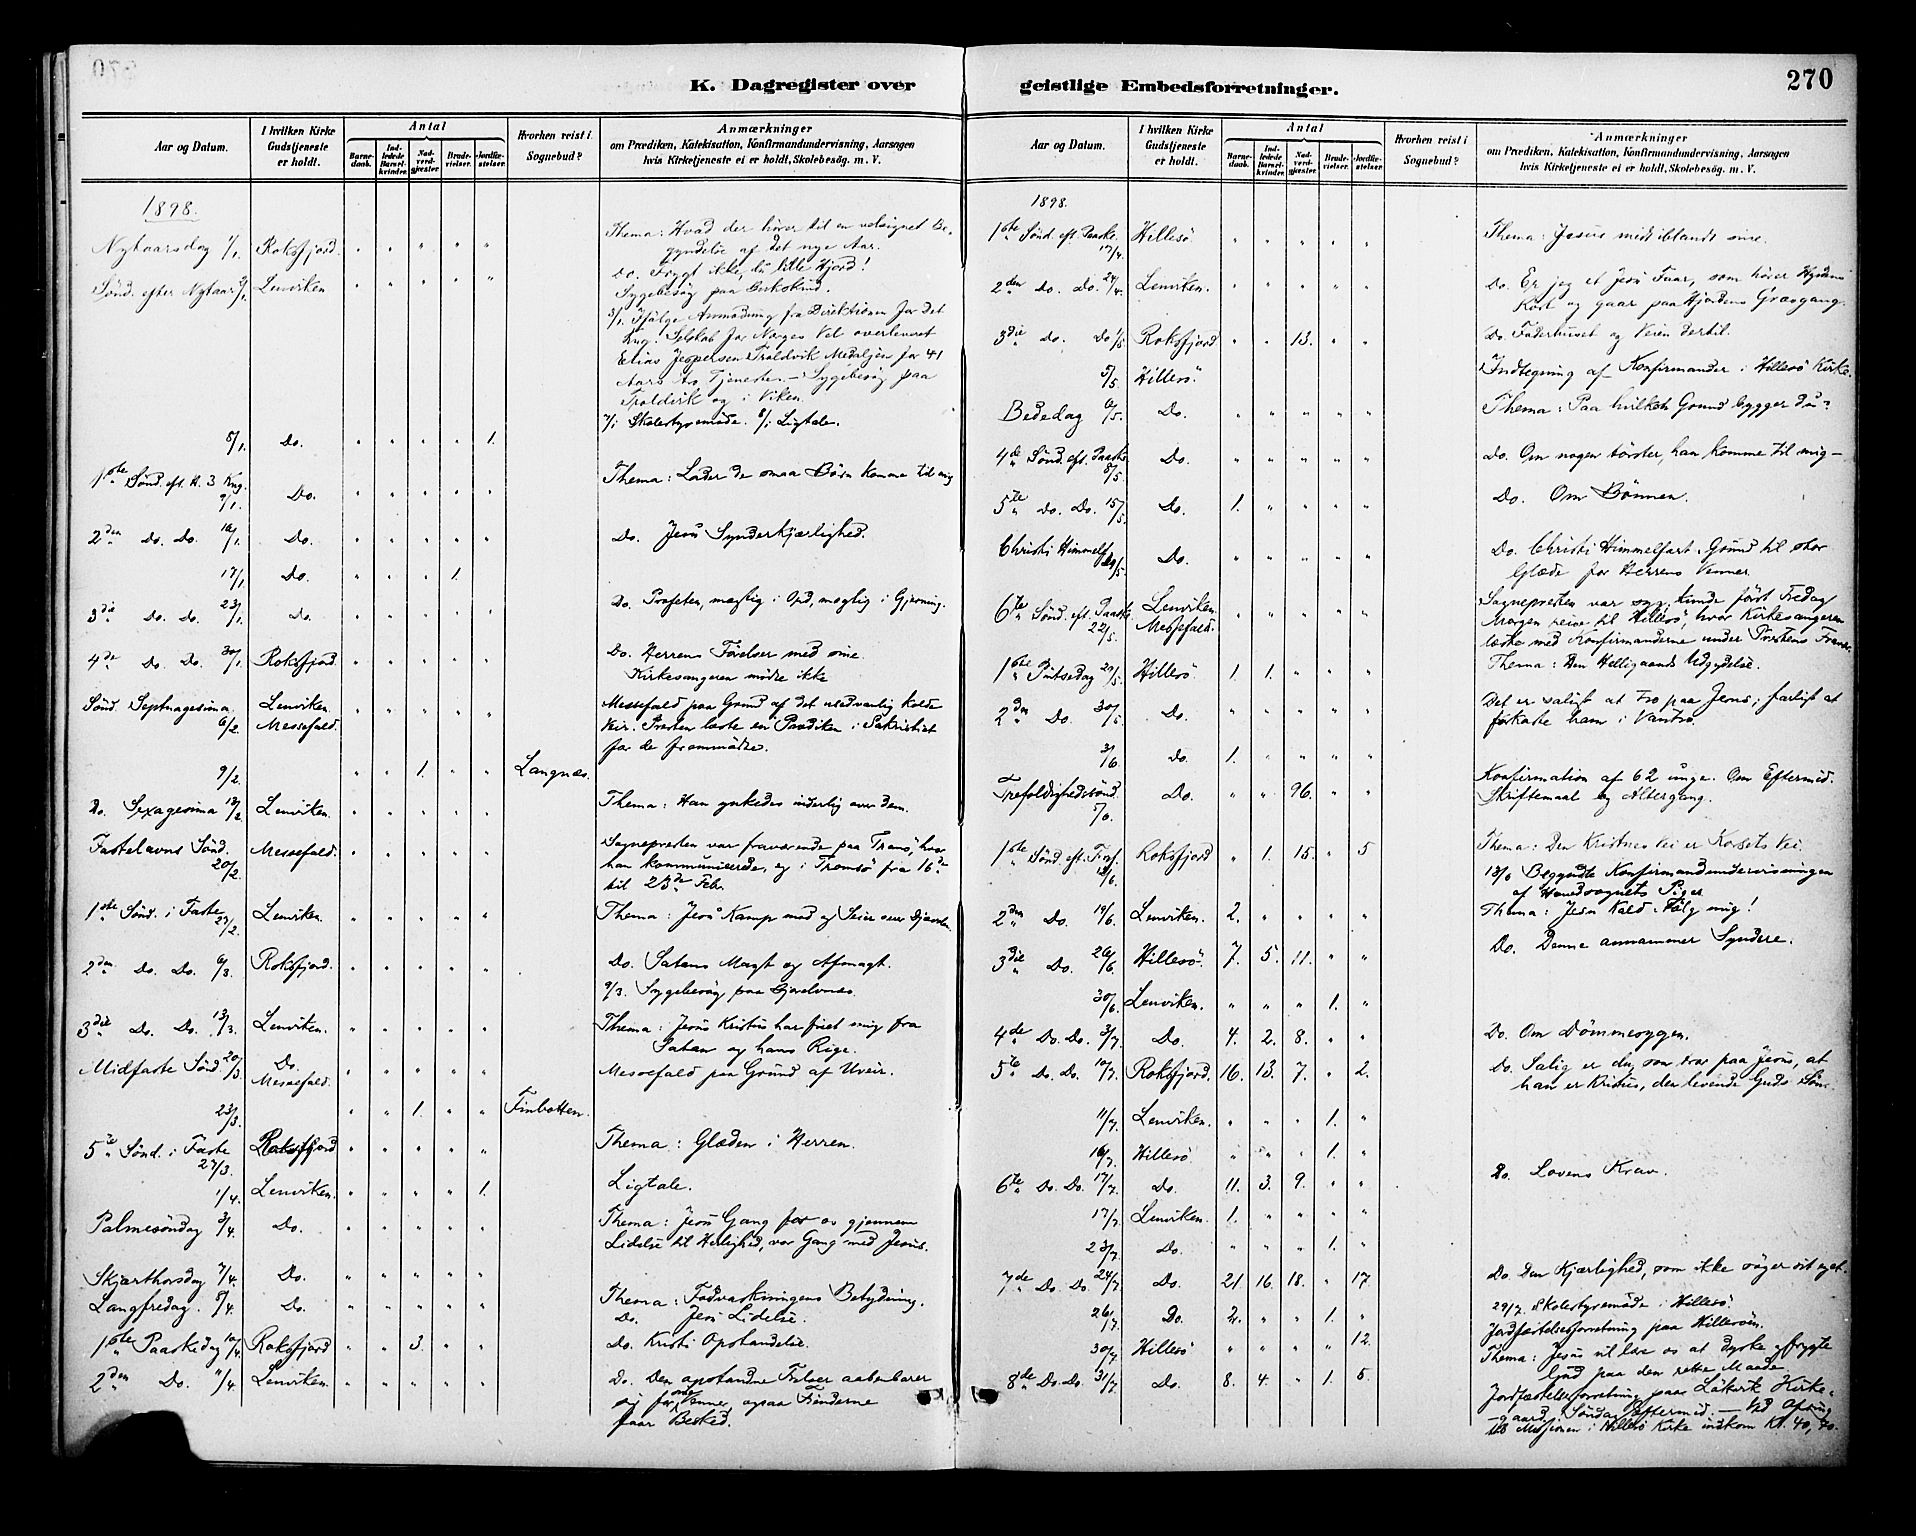 K. Dagregister over geistlige Embedsforretninger. 270
Aar og Datum. | I hvilken Kirke Gudstjeneste er holdt. | Antal | Barnedaab. | Indledede Barselkvinder. | Nadverdgjester. | Brudevielser. | Jordfæstelser. | Hvorhen reist i Sognebud? | Anmærkninger om Prædiken, Katekisation, Konfirmandundervisning, Aarsagen hvis Kirketjeneste ei er holdt, Skolebesög. m. V.
1898.
Nytaarsdag 1/1. Roksfjord. " " " " " Thema: Hvad der hører til en velsignet Be-
gyndelse af det nye Aar.
Sönd. efter Nytaar 2/1. Lenviken " " " " " Do. Frygt ikke, du lille Hjord!
Sygebesög paa
3/1. Ifölge Anmodning fra Direktionen for det
Kng. Selskab for Norges Vel overleveret
Elias Jespersen Troldvik Medaljen for 41
Aars Tjeneste. – Sygebesög paa
Troldvik og i Viken.
7/1 Skolestyremöde. 8/1 Ligtale.
8/1. Do. " " " " 1.
1ste Sönd. eft. H. 3 Kng. 9/1. Do. " " " " " Thema: Lader de smaa Börn komme til mig
2den Do. Do. 16/1. Do. " " " " " Do. Jesu Synderkjærlighed.
17/1 Do. " " " 1.
3die Do. Do. 23/1. Do. " " " " " Do. Profeten, mægtig i Ord, mægtig i Gjerning.
4de Do. Do. 30/1 Roksfjord. " " " " " Do. Herrens Förelser med sine.
Kirkesangeren mödte ikke
Sönd. Septuagesima 6/2 Lenviken Messefald. " " " " " Messefald paa Grund af det usedvanlig kolde
Veir. Presten læste en Prædiken i Sakristiet
for de fremmödte.
9/2. " " 1. " " Langnæs.
Do. Sexagesima 13/2 Lenviken. " " " " " Thema: Han ynkedes inderlig over dem.
Fastelavns Sönd. 20/2. Messefald. " " " " " Sognepresten var fraværende paa Tranö, hvor
han kommunicerede, og i Tromsö fra 16de
til 23de Feb.
1ste Sönd. i Faste 27/2. Lenviken. " " " " " Thema: Jesu Kamp med og Seier over Djævelen
2den Do. Do. 6/3 Roksfjord. " " " " " Do. Satans Magt og Afmagt.
9/3. Sygebesög paa
3die Do. Do. 13/3. Lenviken. " " " " " Thema: Jesus Kristus har friet mig fra
Satan og hans Rige.
Midfaste Sönd. 20/3 Do. Messefald. " " " " " Messefald paa Grund af Uveir.
23/3. " " 1. " " Finbotten.
5te Sönd. i Faste 27/3. Roksfjord " " " " " Thema: Glæden i Herren.
1/4. Lenviken. " " " " 1. Ligtale.
Palmesöndag 3/4. Do. " " " " " Thema: Jesu Gang for os gjennem
Lidelse til Herlighed, vor Gang med Jesus.
Skjærthorsdag 7/4. Do. " " " " " Thema: Fodvaskningens Betydning.
Langfredag. 8/4. Do. " " " " " Do. Jesu Lidelse.
1ste Paaskedag 10/4. Roksfjord " " 3. " " Do. Kristi Opstandelse.
2den Do. 11/4. Lenviken. " " " " " Do. Den opstandne Frelser aabenbarer
sig for Venner, ogsaa Fienderne
faar Besked.
1898.
1ste Sönd. eft. Paaske 17/4. Hillesö. " " " " " Thema: Jesus midt iblandt sine.
2den Do. Do. 24/4. Lenviken. " " " " " Do. Er jeg et Jesu Faar, som hörer Hyrdens
Röst og gaar paa Hyrdens Græsgang.
3die Do. Do 1/5 Roksfjord " " 13. " " Do. Faderhuset og Veien dertil.
5/5. Hillesö. Indtegning af Konfirmander i Hillesö Kirke.
Bededag 6/5. Do. " " " " " Thema: Paa hvilken Grund bygger du?
4de Sönd. eft. Paaske 8/5. Do. " " " " " Do. Om nogen törster, han komme til mig –
5te Do. Do. 15/5. Do. 1. " " " " Do. Om Bönnen.
Christi Himmelf. 19/5. Do. " " " " " Do. Christi Himmelfart, Grund til stor
Glæde for Herrens Venner.
6te Sönd. eft. Paaske 22/5. Lenviken. Messefald. " " " " " Sognepresten var syg, kunde först Fredag
Morgen reise til Hillesö, hvor Kirkesangeren
læste med Konfirmanderne under Prestens Fravær.
1ste Pintsedag 29/5. Hillesö 1. 1. " " " Thema: Den Helligaands Udgydelse.
2den Do. 30/5 Do. " " " " " Det er saligt at tro paa Jesus; farligt at
forkaste ham i Vantro.
3/6 Do 1. " " " "
Trefoldighedssönd. 5/6. Do. " " 96. " " Konfirmation af 62 unge. Om Eftermid.
Skriftemaal og Altergang.
1ste Sönd. eft. Tref. 12/6. Roksfjord " 1. 15. " 5 Thema: Den Kristnes Vei er Korsets Vei.
13/6 Begyndte Konfirmandundervisningen
af Hovedsognets Piger
2den Do. 19/6. Lenviken. 2. " " " " Thema: Jesu Kald: Fölg mig!
3die Do. 26/6 Hillesö. 7. 5. 11. " " Do. Denne annammer Syndere.
30/6 Lenviken. " " " 1. "
4de Do. Do. 3/7. Do. 4. 2. 8. " " Do. Om Dömmesygen.
5te Do. Do. 10/7. Roksfjord. 16. 13. 7. " 2. Do. Salig er du, som tror paa Jesus, at
han er Kristus, den levende Guds Sön.
11/7. Lenviken. " " " 1. "
16/7. Hillesö " " " 1. "
6te Do. Do. 17/7. Do. 11. 3. 9. " " Do. Lovens Krav.
17/7. Lenviken. 1. " " " "
23/7. Do. " " " 1. "
7de Do. Do. 24/7 Do. 21. 16. 18. " 17. Do. Den Kjærlighed, som ikke söger sit eget.
26/7. Do. 2. " " 1. " 29/7. Skolestyremöde i Hillesö.
Jordfæstelsesforretning paa Hillesöen.
30/7 Hillesö " " " " 12.
8de Do. Do. 31/7. Do. 8. 4. " 1. 5. Thema: Jesus vil lære os at dyrke og frygte
Gud paa den rette Maade
Jordfæstelsesforretning paa Kirke-
gaard, Söndag Eftermid. – Ved Ofring
til Missionen i Hillesö Kirke indkom Kr. 40,70.